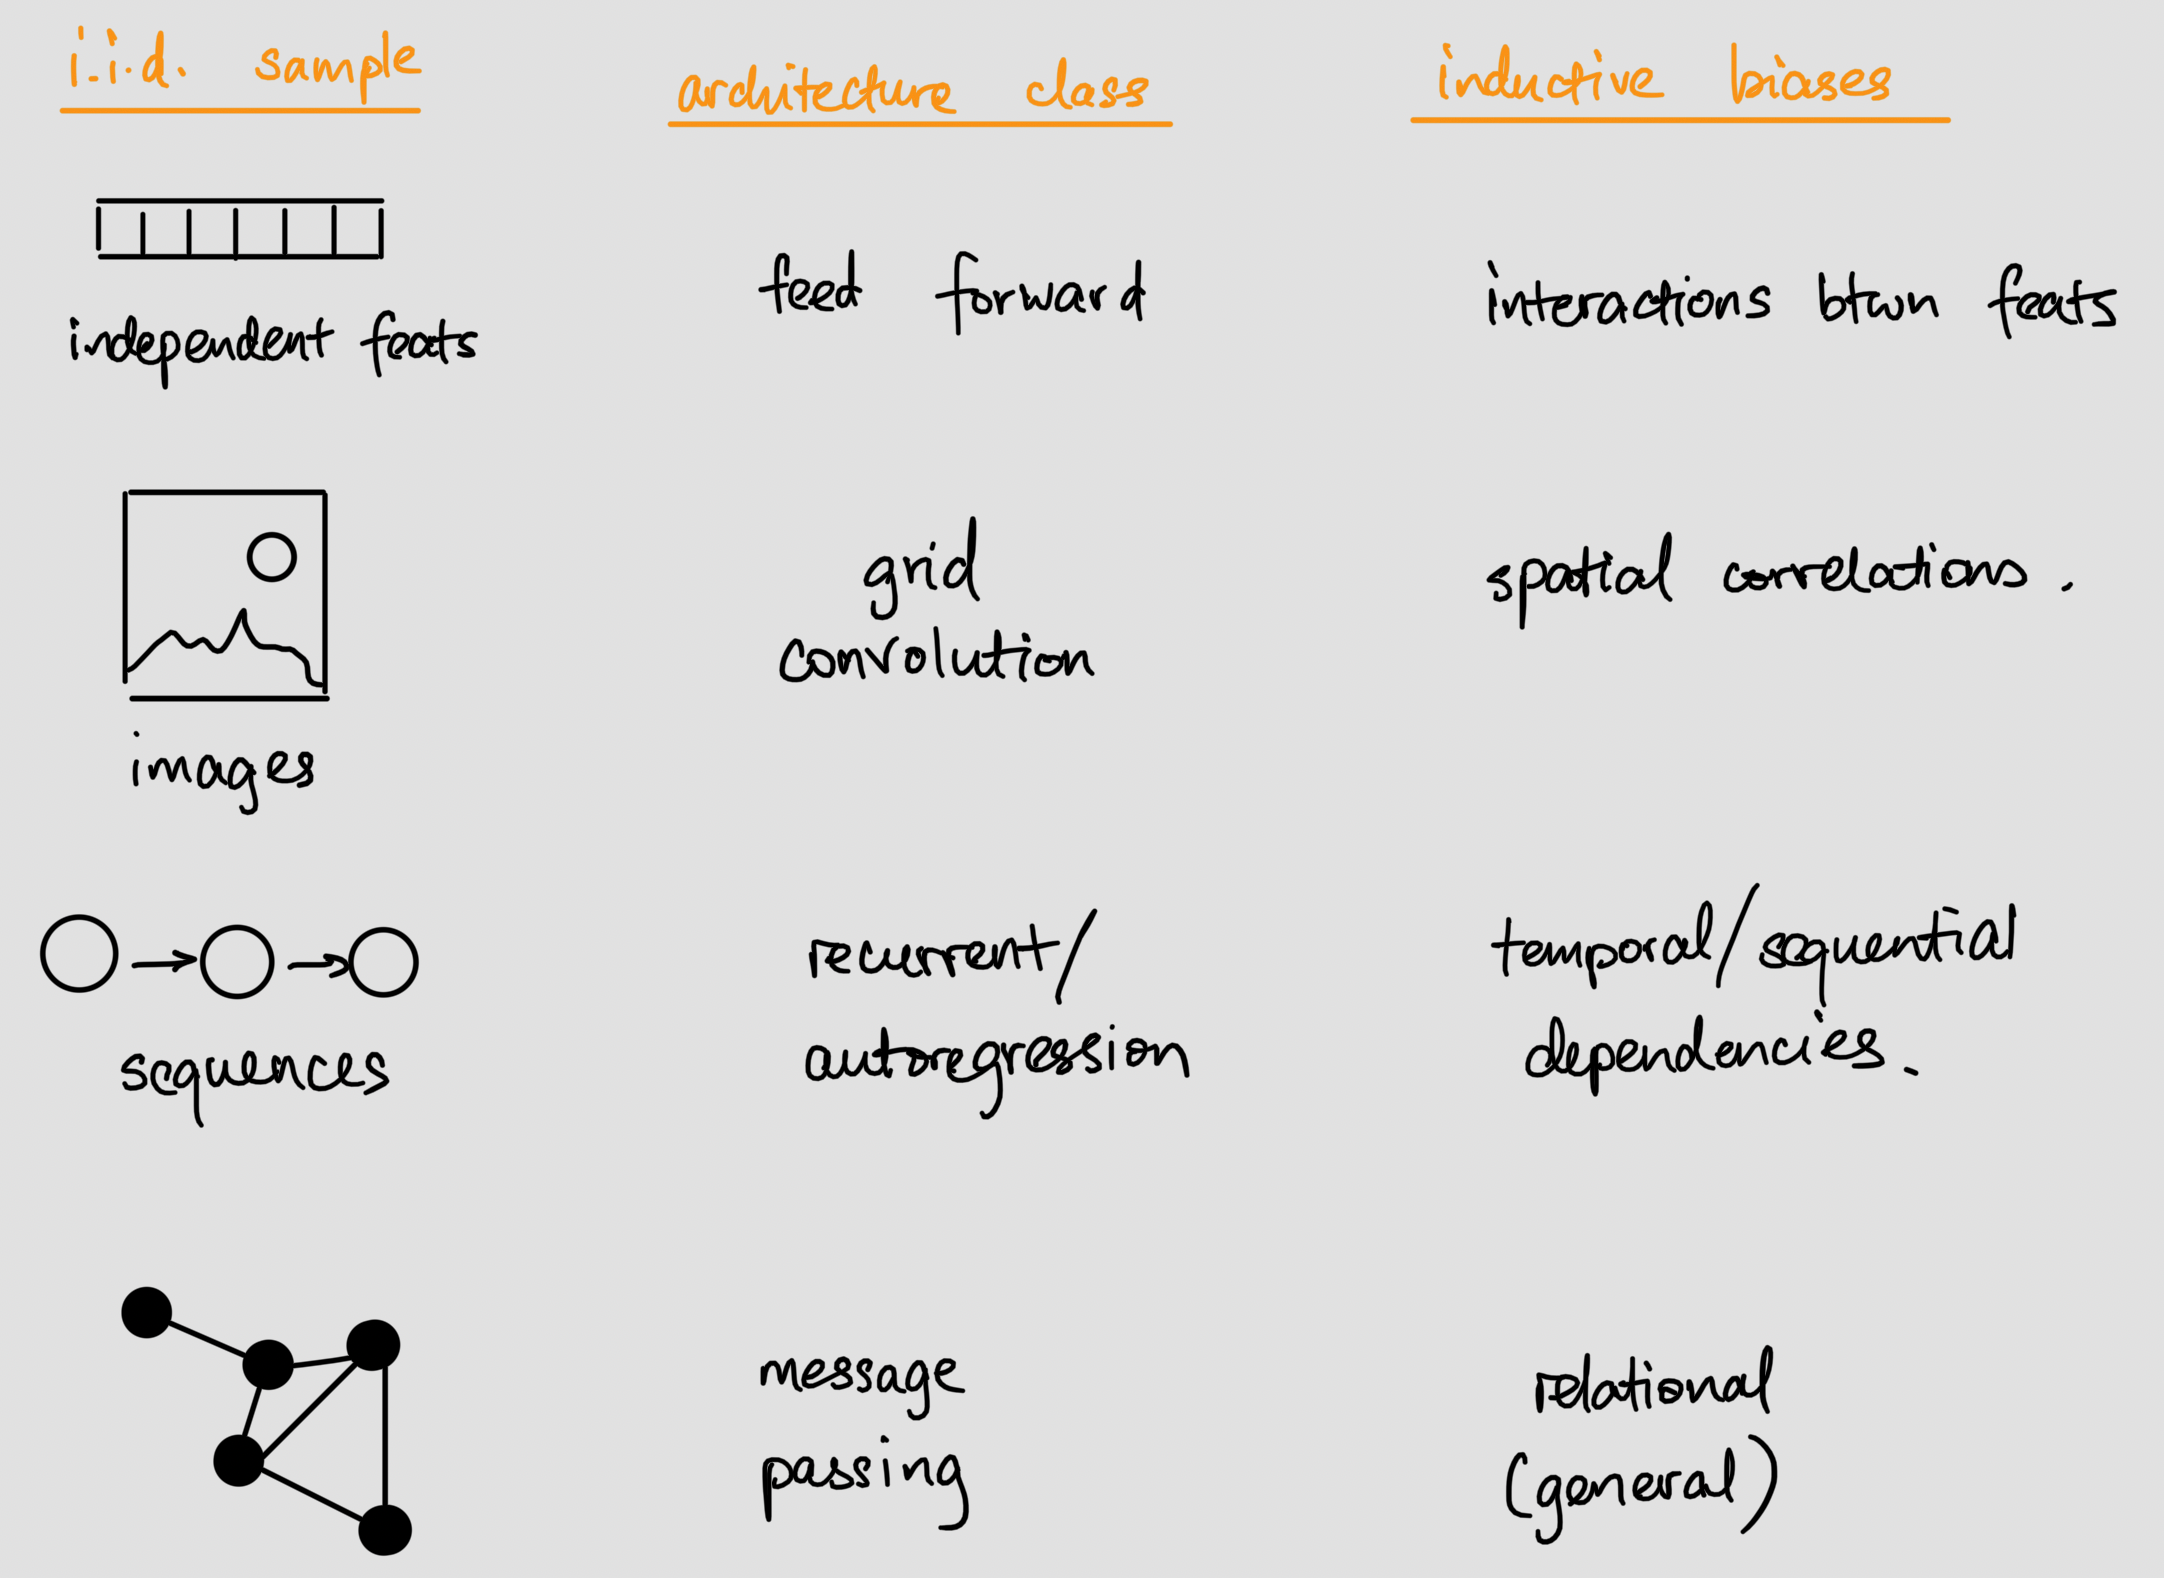 i.i.d. sample
architecture class
inductive biases
independent feats
feed forward
interactions btwn feats
images
grid
convolution
spatial correlations.
sequences
recurrent/
autoregression
temporal/sequential
dependencies.
message
passing
relational
(general)